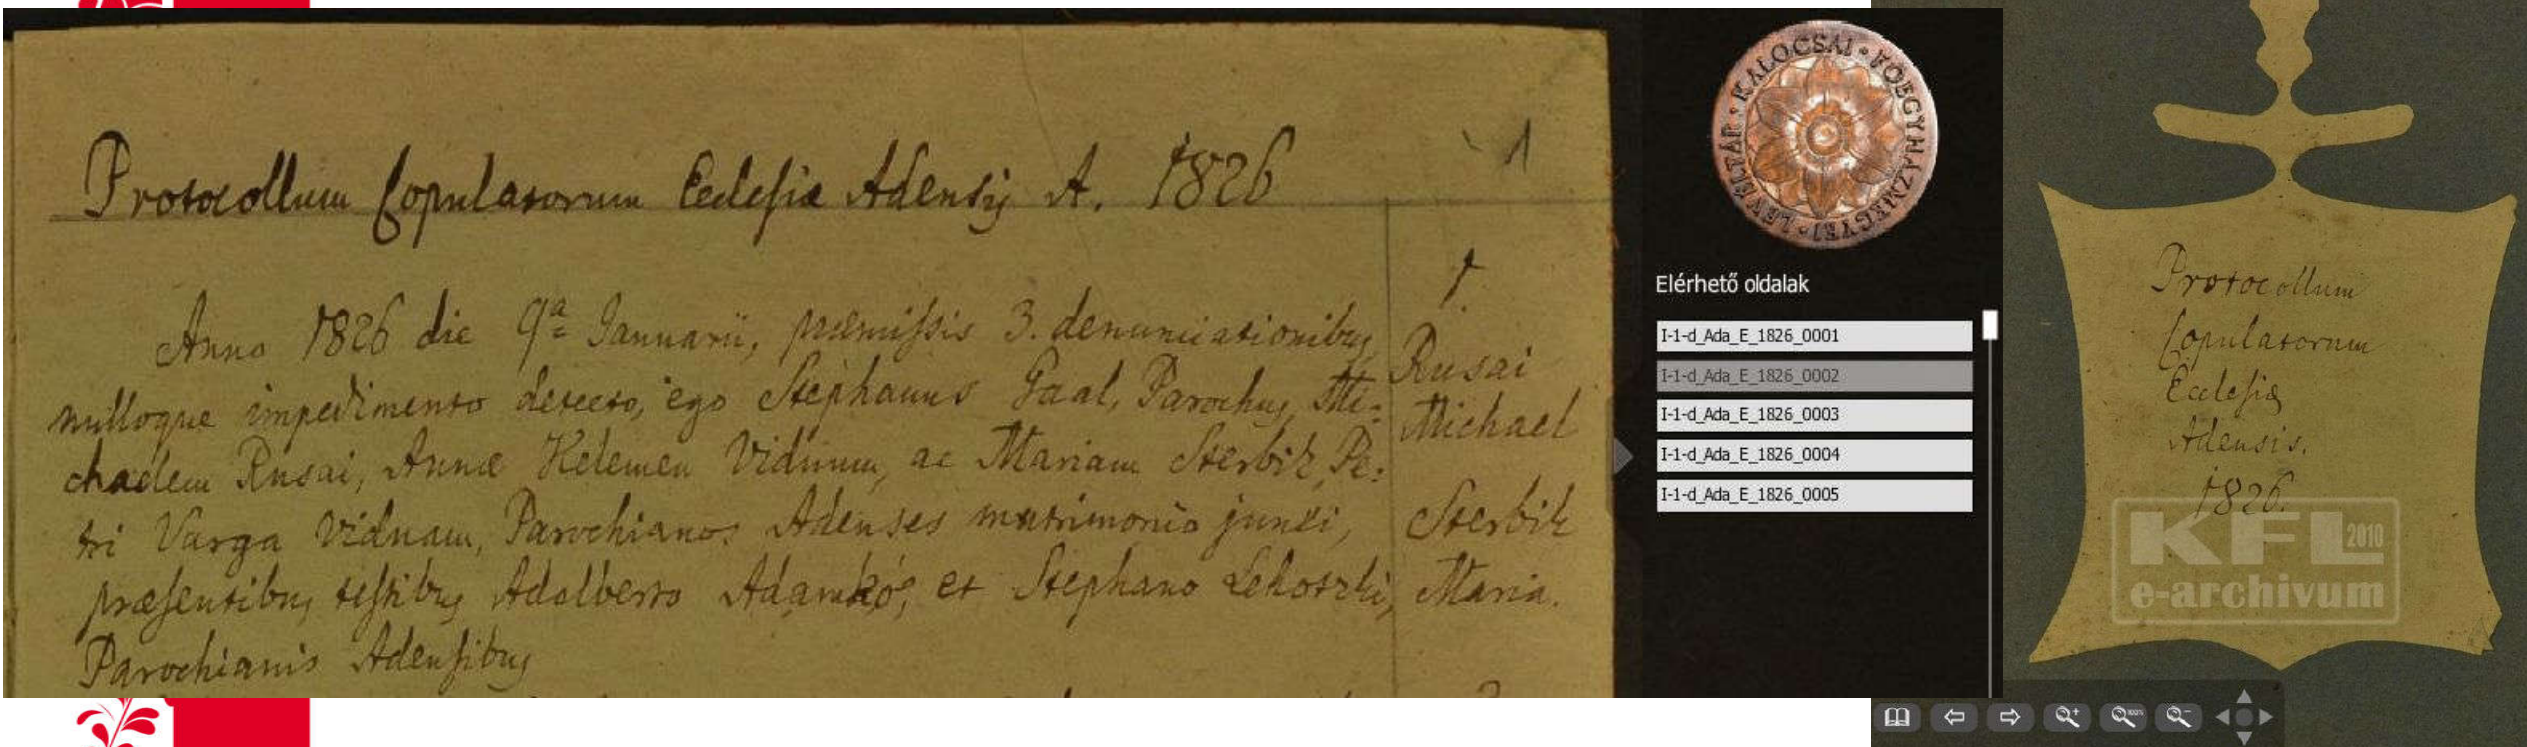 Protocollum Copulatorum Ecclesiæ Adensis A. 1826
1
Anno 1826 die 9ª Januarii, præmissis 3. denunciationibus
nulloque impedimento detecto, ego Stephanus Gaal, Parochus, Mi-
chaelem Rusai, Annæ Kelemen Viduum, ac Mariam Sterbik, Pe-
tri Varga Viduam, Parochianos Adenses matrimonio junxi,
præsentibus testibus Adalberto Adamkó, et Stephano Lehotzki,
Parochianis Adensibus
1.
Rusai
Michael
Sterbik
Maria.
KALOCSAI • FŐEGYHÁZMEGYEI • LEVÉLTÁR •
Elérhető oldalak
I-1-d_Ada_E_1826_0001
I-1-d_Ada_E_1826_0002
I-1-d_Ada_E_1826_0003
I-1-d_Ada_E_1826_0004
I-1-d_Ada_E_1826_0005
Protocollum
Copulatorum
Ecclesiæ
Adensis.
1826.
KFL 2010
e-archivum
100%